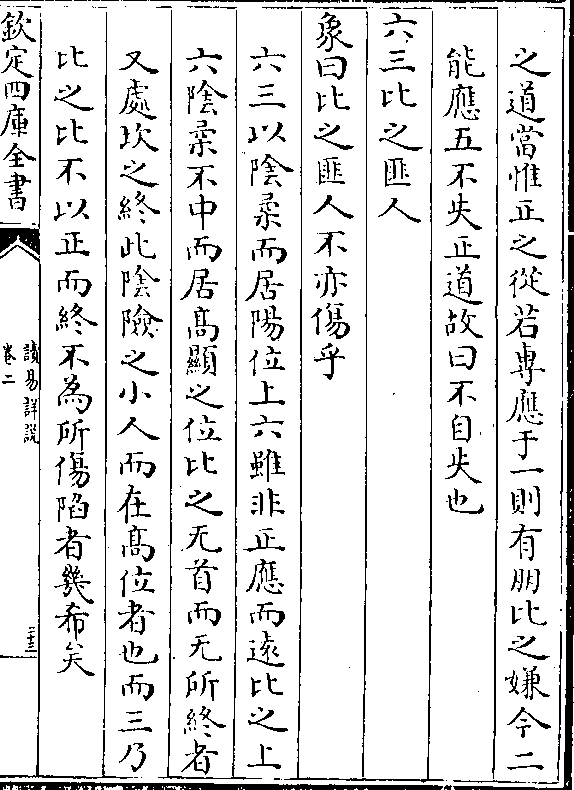 之道當惟正之從若專應于一則有朋比之嫌今二
能應五不失正道故曰不自失也
六三比之匪人
象曰比之匪人不亦傷乎
六三以陰柔而居陽位上六雖非正應而逺比之上
六陰柔不中而居髙顯之位比之无首而无所終者
又處坎之終此陰險之小人而在髙位者也而三乃
比之比不以正而終不為所傷陷者幾希矣
欽定四庫全書
讀易詳說
卷二
三十三